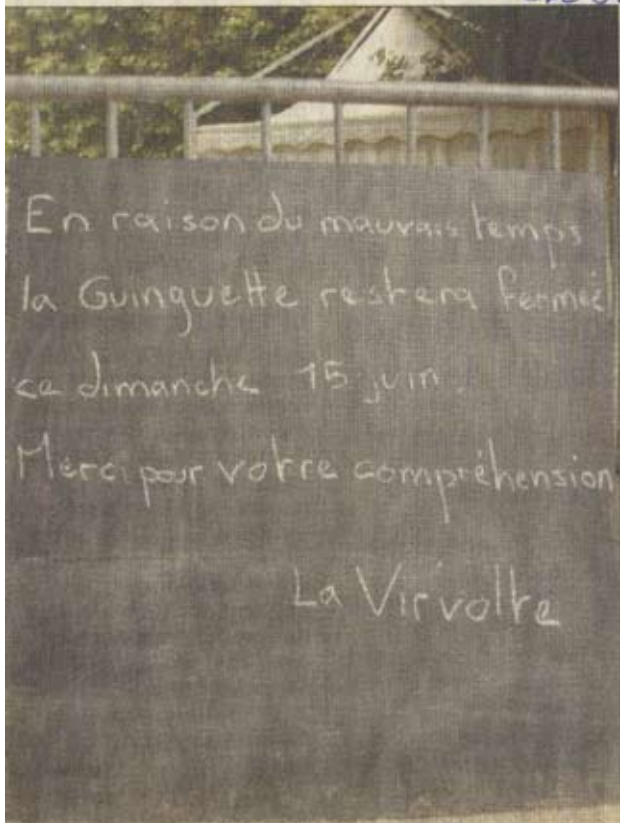 En raison du mauvais temps
la Guinguette restera fermée
ce dimanche 15 juin.
Merci pour votre compréhension
La Vir'volte